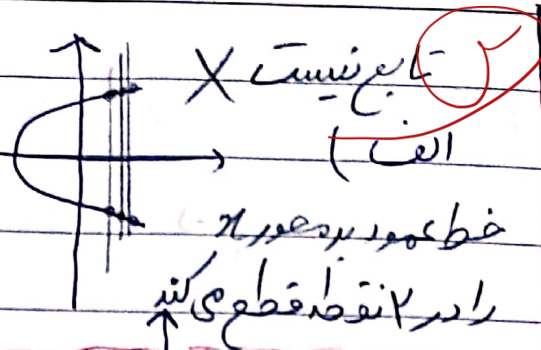 ۲
تابع نیست ✗
الف )
خط عمود بر محور x
را در ۲ نقطه قطع می کند